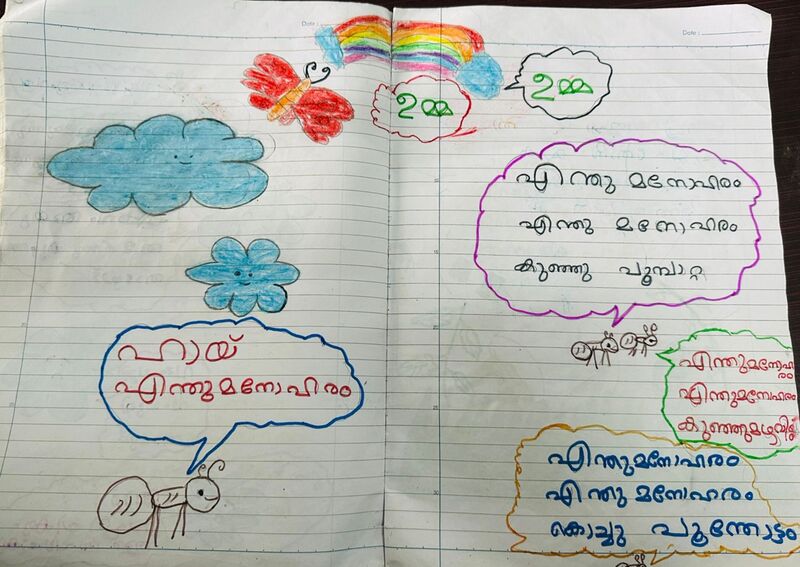 Date :
Date :
ഉമ്മ
ഉമ്മ
എന്തു മനോഹരം
എന്തു മനോഹരം
കുഞ്ഞു പൂമ്പാറ്റ
ഹായ്
എന്തുമനോഹരം
എന്തുമനോഹരം
എന്തുമനോഹരം
കുഞ്ഞുമഴവില്ല്
എന്തുമനോഹരം
എന്തുമനോഹരം
കൊച്ചു പൂന്തോട്ടം